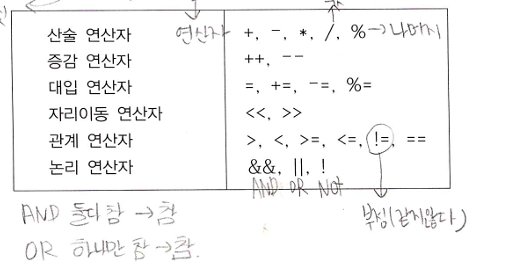 연산자
산술 연산자 +, -, *, /, % → 나머지
증감 연산자 ++, --
대입 연산자 =, +=, -=, %=
자리이동 연산자 <<, >>
관계 연산자 >, <, >=, <=, !=, ==
논리 연산자 &&, ||, !
AND OR NOT
AND 둘다 참 → 참
부정(같지않다)
OR 하나만 참 → 참.